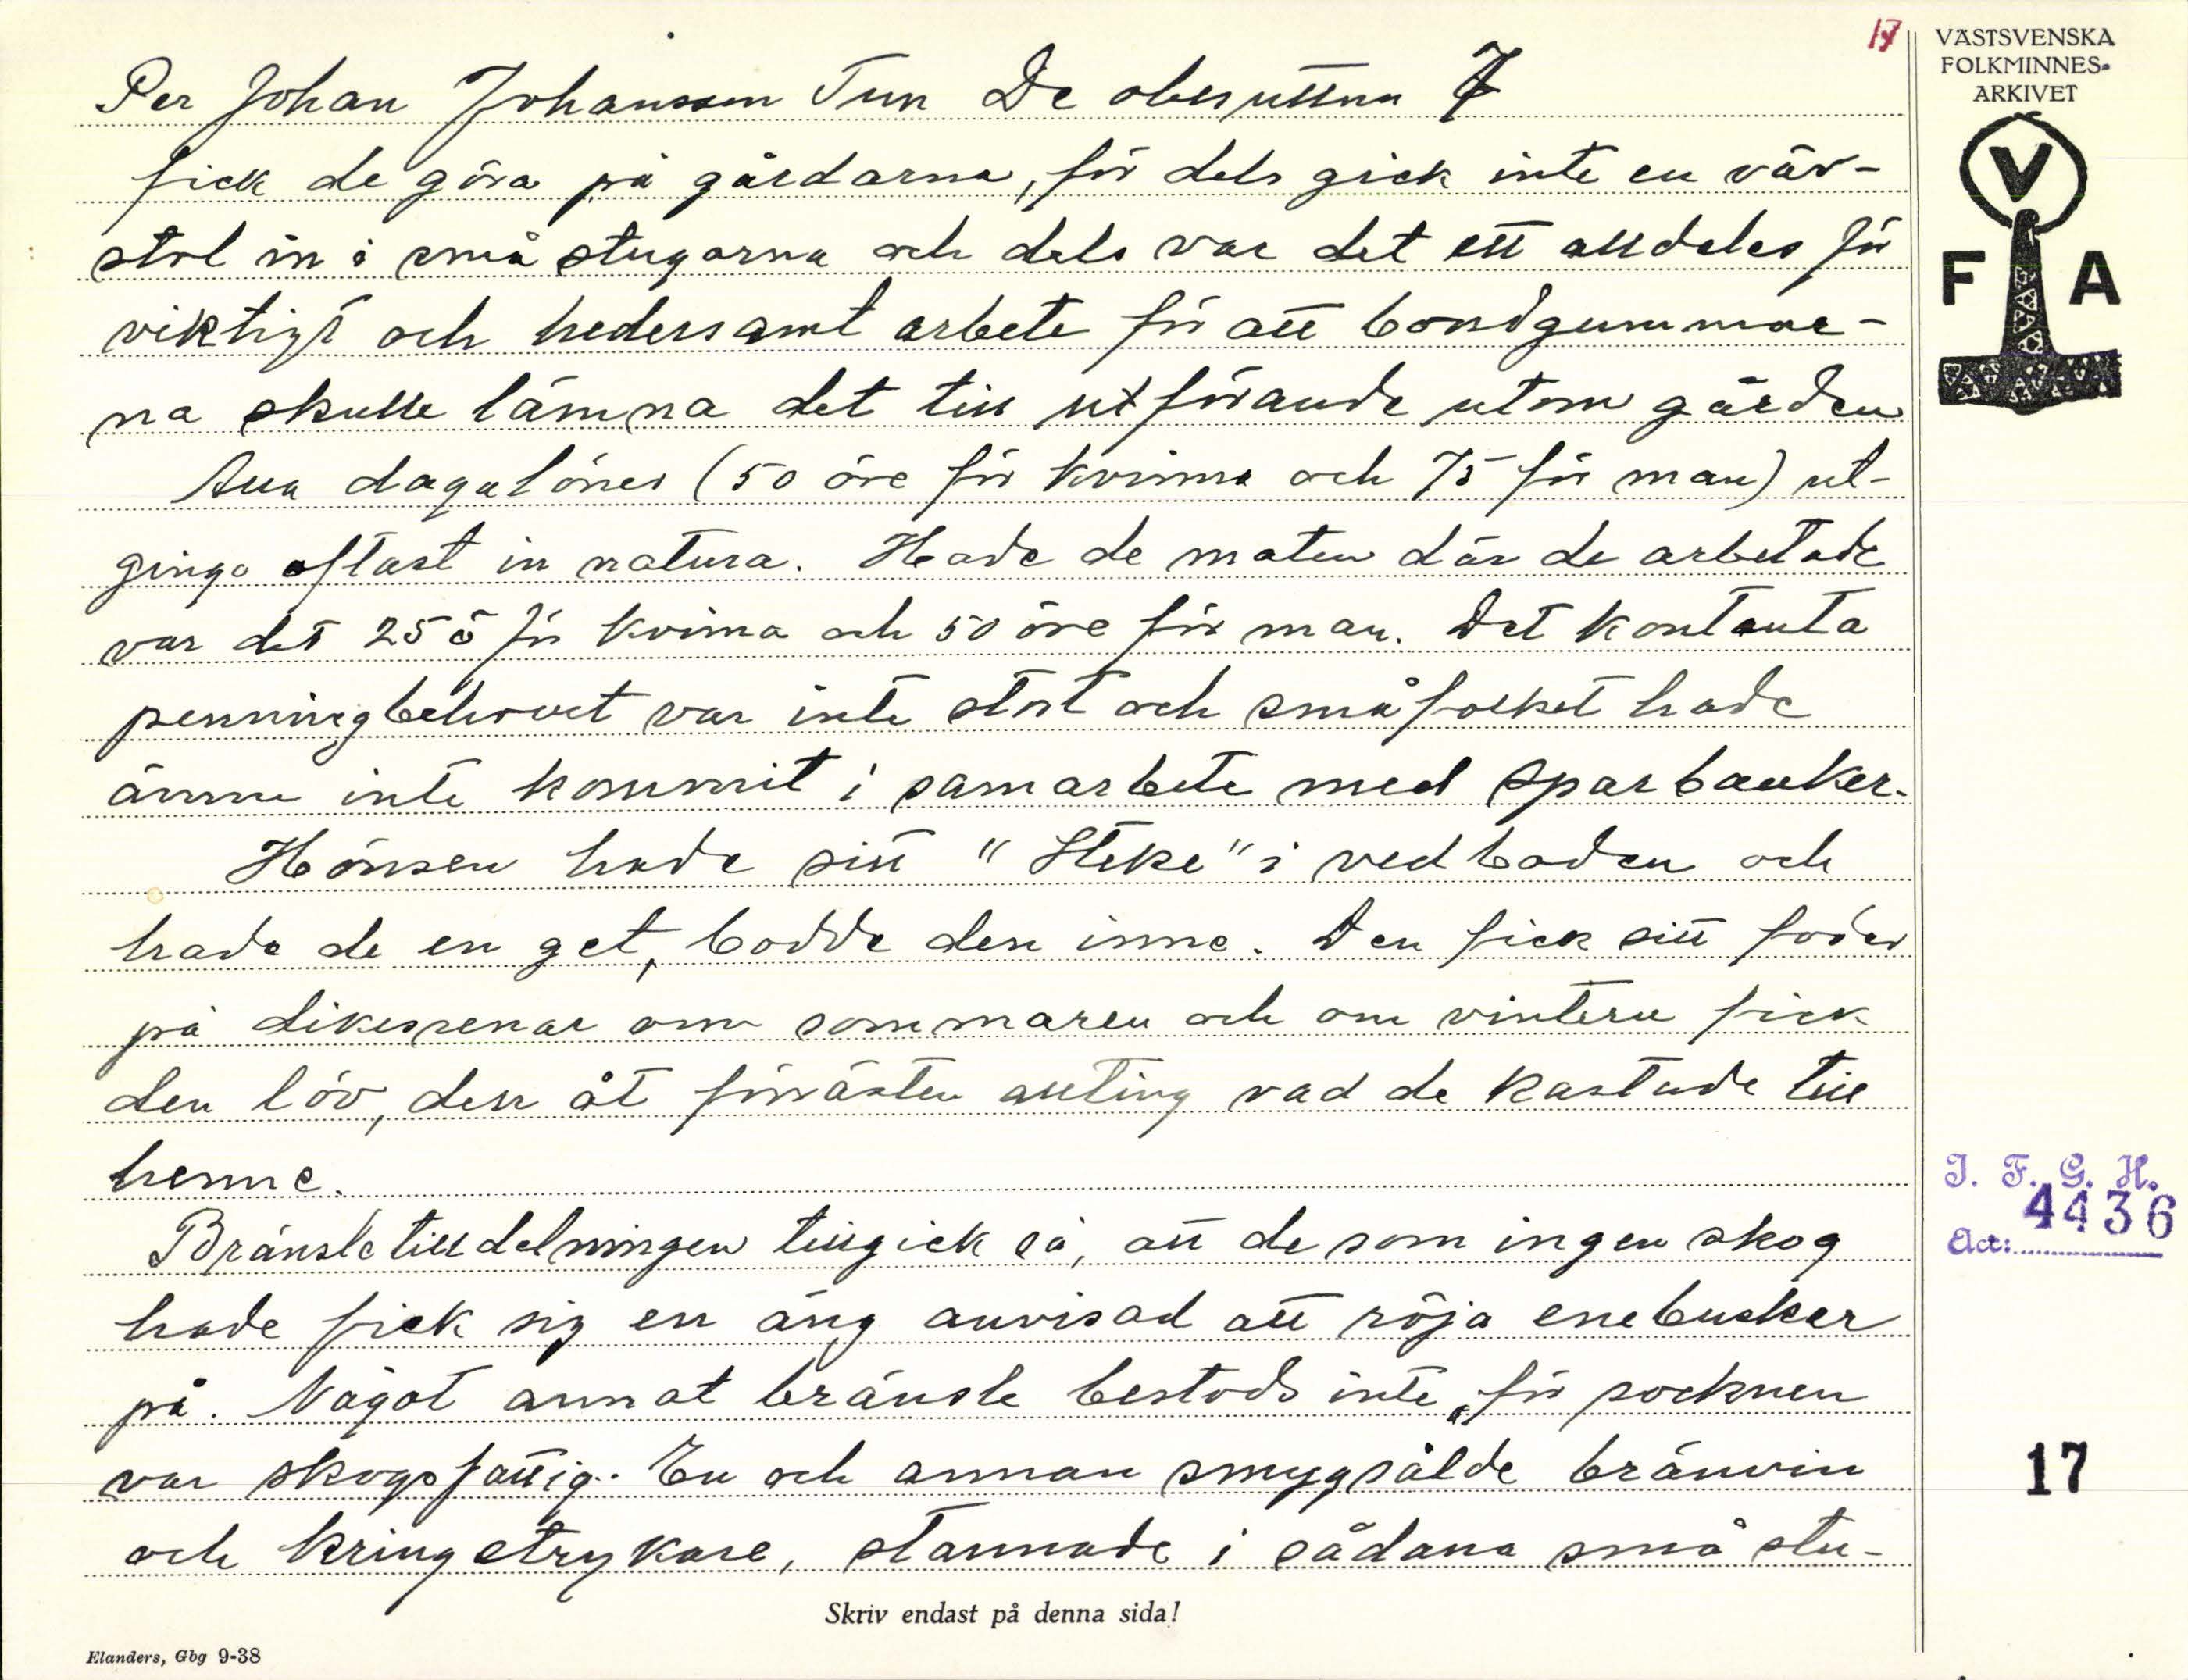 17
Per Johan Johansson Tun De obesuttna 7
fick de göra på gårdarna, för dels gick inte en väv-
stol in i små stugorna och dels var det ett alldeles för
viktigt och hedersamt arbete för att bondgummor-
na skulle lämna det till utförande utom gården
Alla dagalöner (50 öre för kvinna och 75 för man) ut-
gingo oftast in natura. Hade de maten där de arbetade
var det 25 ö för kvinna och 50 öre för man. Det kontanta
penningbehovet var inte stort och småfolket hade
ännu inte kommit i samarbete med sparbanker.
Hönsen hade sitt "Steke" i vedboden och
hade de en get, bodde den inne. Den fick sitt foder
på dikesrenar om sommaren och om vintern fick
den löv, den åt förrästen allting vad de kastade till
henne.
Bränsletilldelningen tillgick så, att de som ingen skog
hade fick sig en äng anvisad att röja enebuskar
på. Något annat bränsle bestods inte, för socknen
var skogsfattig. En och annan smygsålde bränvin
och kringstrykare, stannade i sådana små stu-
Skriv endast på denna sida!
Elanders, Gbg 9-38
VÄSTSVENSKA
FOLKMINNES-
ARKIVET
V
F A
I. F. G. H.
4436
Acc:
17